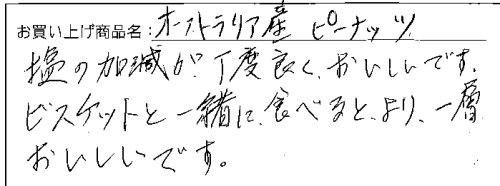 お買い上げ商品名：オーストラリア産 ピーナッツ
塩の加減が丁度良く、おいしいです。
ビスケットと一緒に食べると、より、一層
おいしいです。